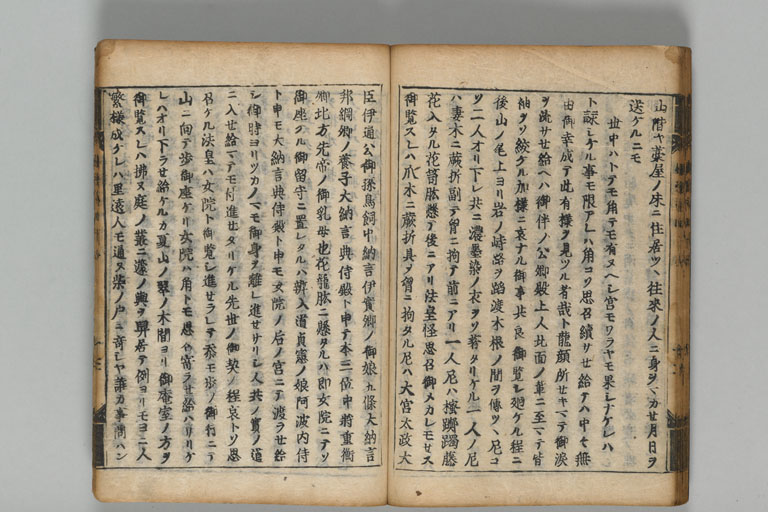 山階ヤ藁屋ノ床ニ住居ツヽ往来ノ人ニ身ヲハカセ月日ヲ
送ケルニモ
世中ハトテモ角テモ有ヌヘシ宮モワラヤモ果シナケレハ
ト詠シケル事モ限アレハ角コソ思召續サセ給テハ中々無
由御幸成テ此有様ヲ見ツル者哉ト龍顔所セキマテ御涙
ヲ流サセ給ヘハ御伴ノ公卿殿上人北面ノ輩ニ至マテ皆
袖ヲソ絞ケル加様ニ哀ナル御事共良御覧シ廻ケル程ニ
後山ノ尾上ヨリ岩ノ峙路ヲ蹈渡木根ノ間ヲ傳ツヽ尼コ
ソ二人オリ下レ共ニ濃墨染ノ衣ヲソ着タリケル一人ノ尼
ハ妻木ニ蕨折副テ胸ニ拘テ前ニアリ一人尼ハ樒躑躅藤
花入タル花筐肱懸テ後ニアリ法皇怪思召御メカレモセス
御覧スレハ爪木ニ蕨折具ヲ胸ニ拘タル尼ハ大宮太政大
臣伊通公御孫鳥飼中納言伊實卿ノ御娘五條大納言
邦綱卿ノ養子大納言典侍殿ト申テ本三位中将重衡
卿北方先帝ノ御乳母也花筐肱ニ懸タルハ即女院ニテソ
御座ケル御留守ニ置レタルハ辨入道貞憲ノ娘阿波内侍
ト申モ大納言典侍殿ト申モ女院ノ后ノ宮ニテ渡ラセ給
シ御時ヨリツカノマモ御身ヲ離レ進セサリシ人共ノ實ノ道
ニ入セ給マテモ付進セタリケル先世ノ御契ノ程哀トソ思
召ケル法皇ハ女院ト御覧シ進セラレテ忝モ歩ノ御行ニテ
山ニ向テ歩御座ケリ女院ハ角トモ思ヤ寄ラセ給ハサリケ
レハオリ下ラセ給ケルカ夏山ノ翠ノ木間ヨリ御庵室ノ方ヲ
御覧スレハ拂ヌ庭ノ叢ニ蓬ノ輿ヲ舁居テ例ヨリモヨニ人
繁様成ケレハ里遠人モ通ヌ柴ノ戸ニ奇シヤ誰カ事問ハン